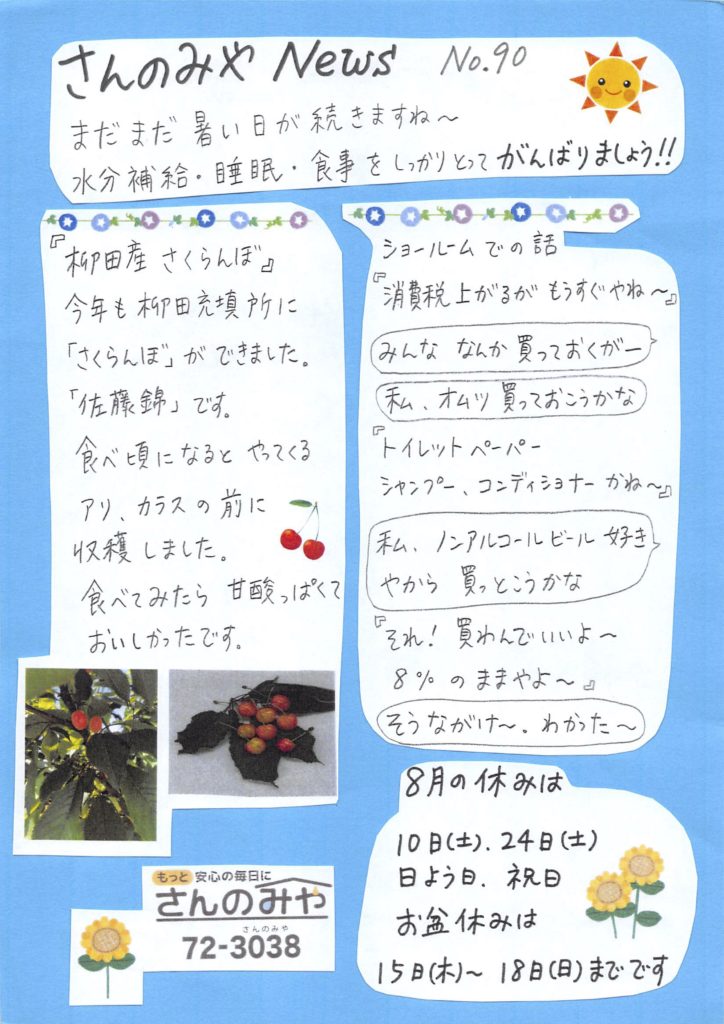 さんのみや News No.90
まだまだ 暑い日が 続きますね〜
水分補給・睡眠・食事をしっかりとって がんばりましょう!!
『柳田産 さくらんぼ』
今年も 柳田充填所に
「さくらんぼ」が できました。
「佐藤錦」です。
食べ頃になると やってくる
アリ、カラスの前に
収穫しました。
食べてみたら 甘酸っぱくて
おいしかったです。
ショールームでの話
『消費税上がるが もうすぐやね〜』
みんな なんか 買っておくがー
私、オムツ 買っておこうかな
『トイレットペーパー
シャンプー、コンディショナー かね〜』
私、ノンアルコールビール 好き
やから 買っとこうかな
『それ! 買わんでいいよ〜
8%のままやよ〜』
そうながけ〜。わかった〜
8月の休みは
10日(土)、24日(土)
日よう日、祝日
お盆休みは
15日(木)〜 18日(日)までです
もっと 安心の毎日に
さんのみや
さんのみや
72-3038